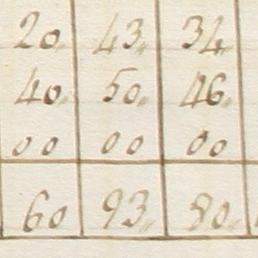 20. 43. 34.
40. 50. 46.
00 00 00
60 93. 80.